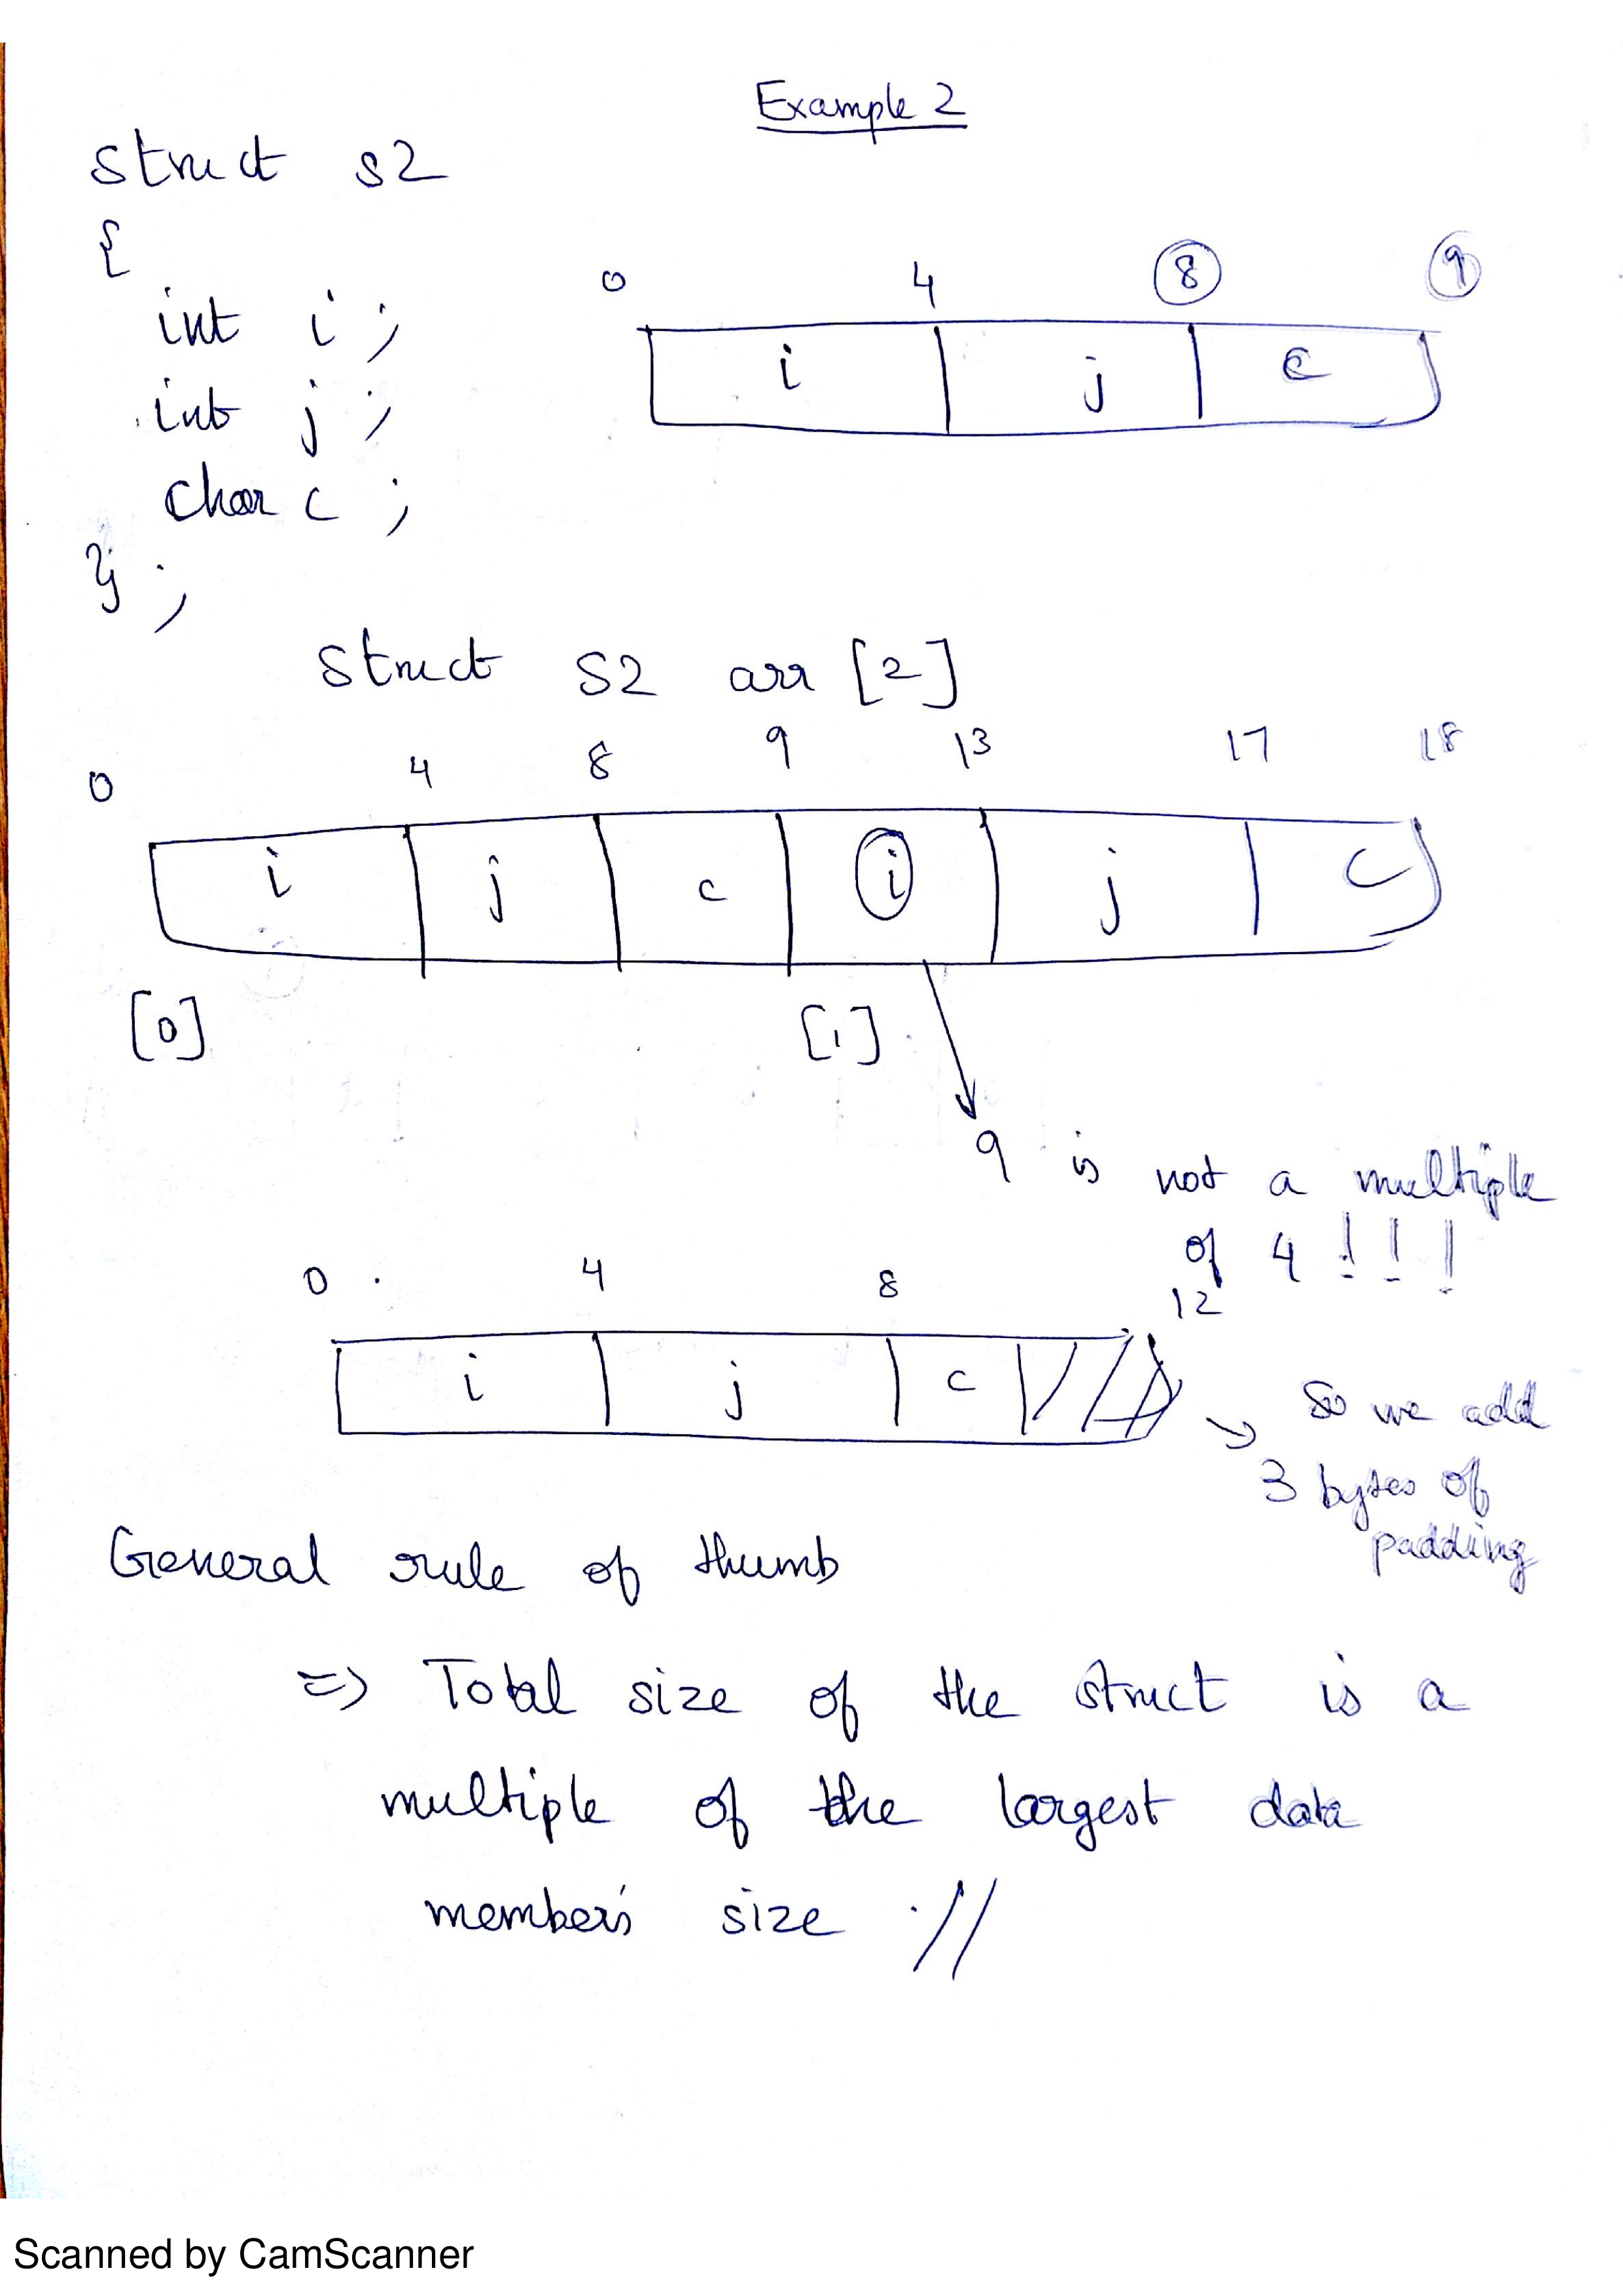 Example 2
struct s2
{
int i ;
int j ;
char c ;
} ;
0 4 8 9
i j c
struct S2 arr [2]
0 4 8 9 13 17 18
i j c i j c
[0] [1]
9 is not a multiple
of 4 ! ! !
0 4 8 12
i j c
So we add
3 bytes of
padding
General rule of thumb
=> Total size of the struct is a
multiple of the largest data
member's size .//
Scanned by CamScanner